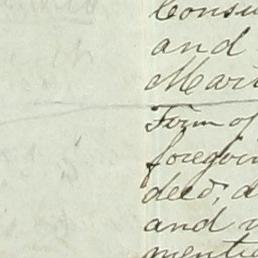 Consu
and
Mari
Form of
foregoin
deed, a
and
mentio